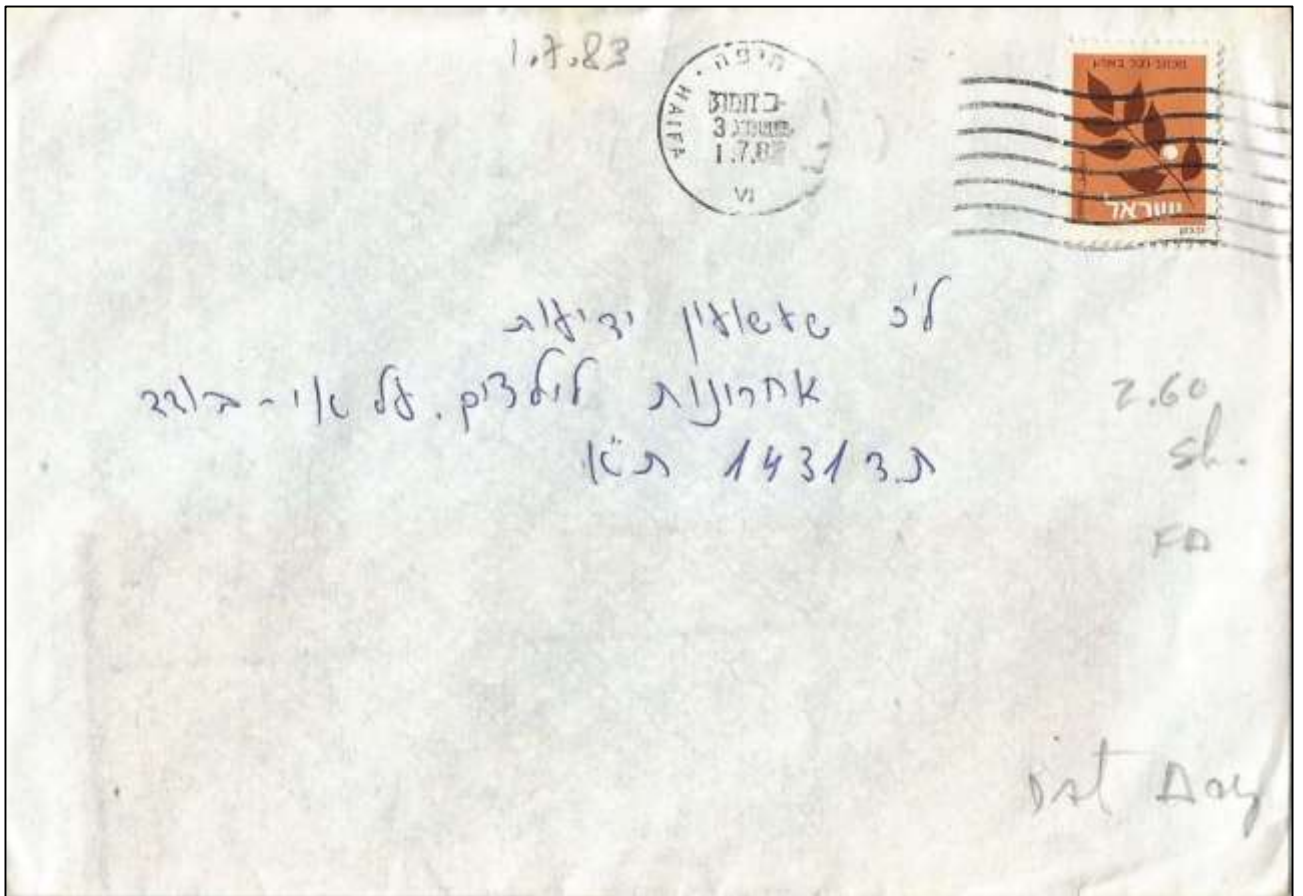 1.7.83
חיפה · HAIFA
1.7.83
VI
ישראל
לכ' שעשועון ידיעות
אחרונות לילדים. על אי-בודד
ת.ד 1431 ת"א
2.60
sh.
FD
Day